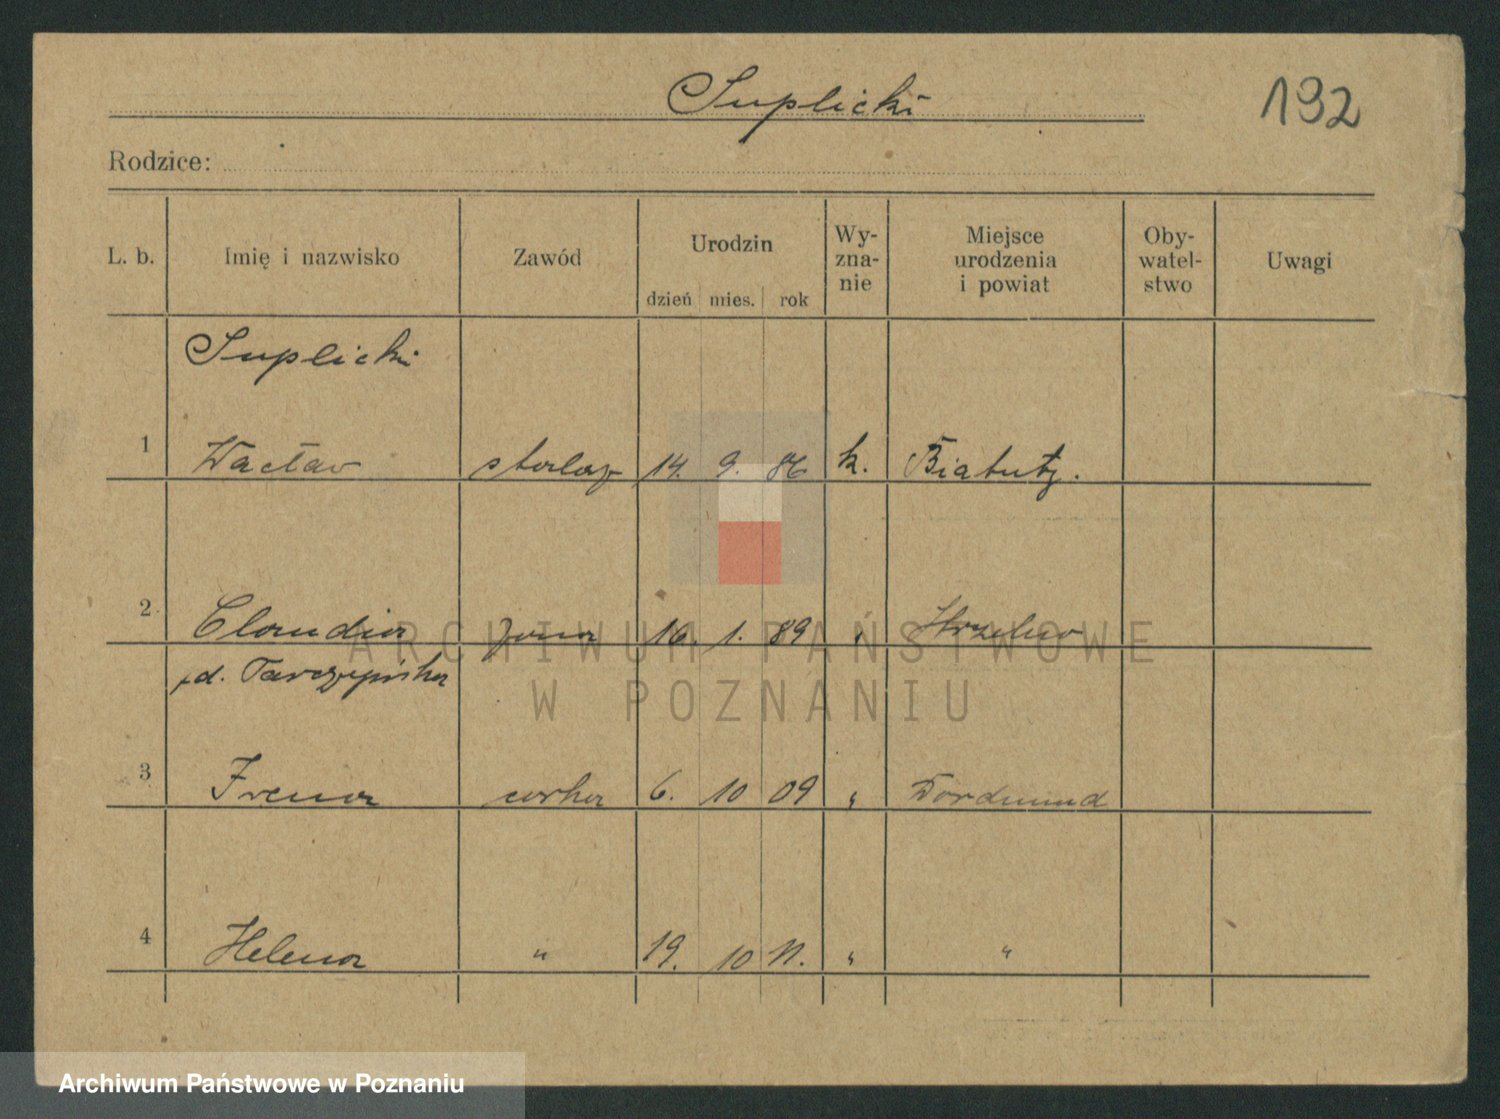 Suplicki
192
Rodzice:
L. b. Imię i nazwisko Zawód Urodzin dzień mies. rok Wy-zna-nie Miejsce urodzenia i powiat Oby-watel-stwo Uwagi
Suplicki
1 Wacław stolarz 14. 9. 86 k. Białuty.
2 Claudia żona 16. 1. 89 " Strzelno
z d. Tarczyńska
3 Irena corka 6. 10 09 " Dordmund
4 Helena " 19. 10 11. " "
ARCHIWUM PAŃSTWOWE
W POZNANIU
Archiwum Państwowe w Poznaniu